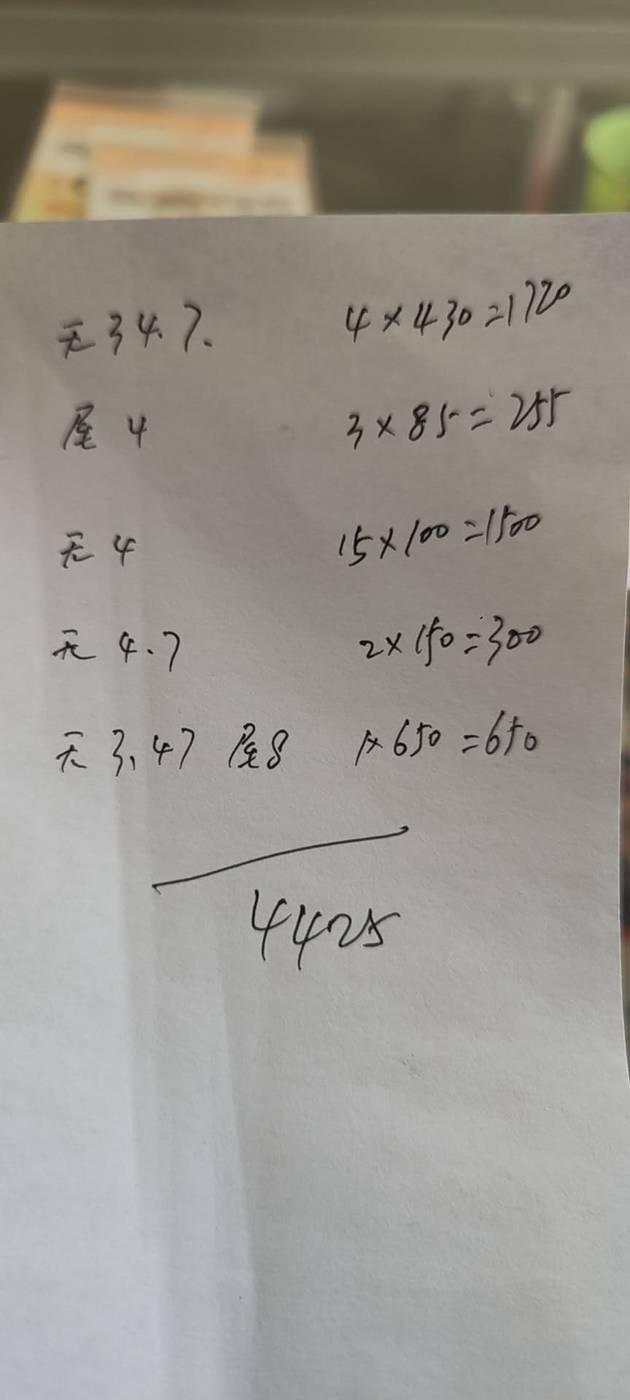 无34.7. 4×430=1720
尾4 3×85=255
无4 15×100=1500
无4.7 2×150=300
无3、47 尾8 1×650=650
4425